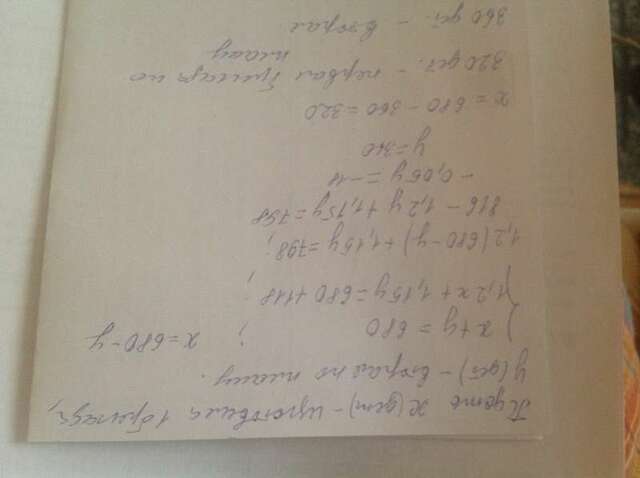 Пусть x(дет) - изготовила 1 бригада,
y(дет) - вторая по плану.
x+y=680 ; x=680-y
1,2x+1,15y=680+118 ;
1,2(680-y)+1,15y=798 ;
816-1,2y+1,15y=798
-0,05y=-18
y=360
x=680-360=320
320 дет. - первая бригада по
плану
360 дет. - вторая